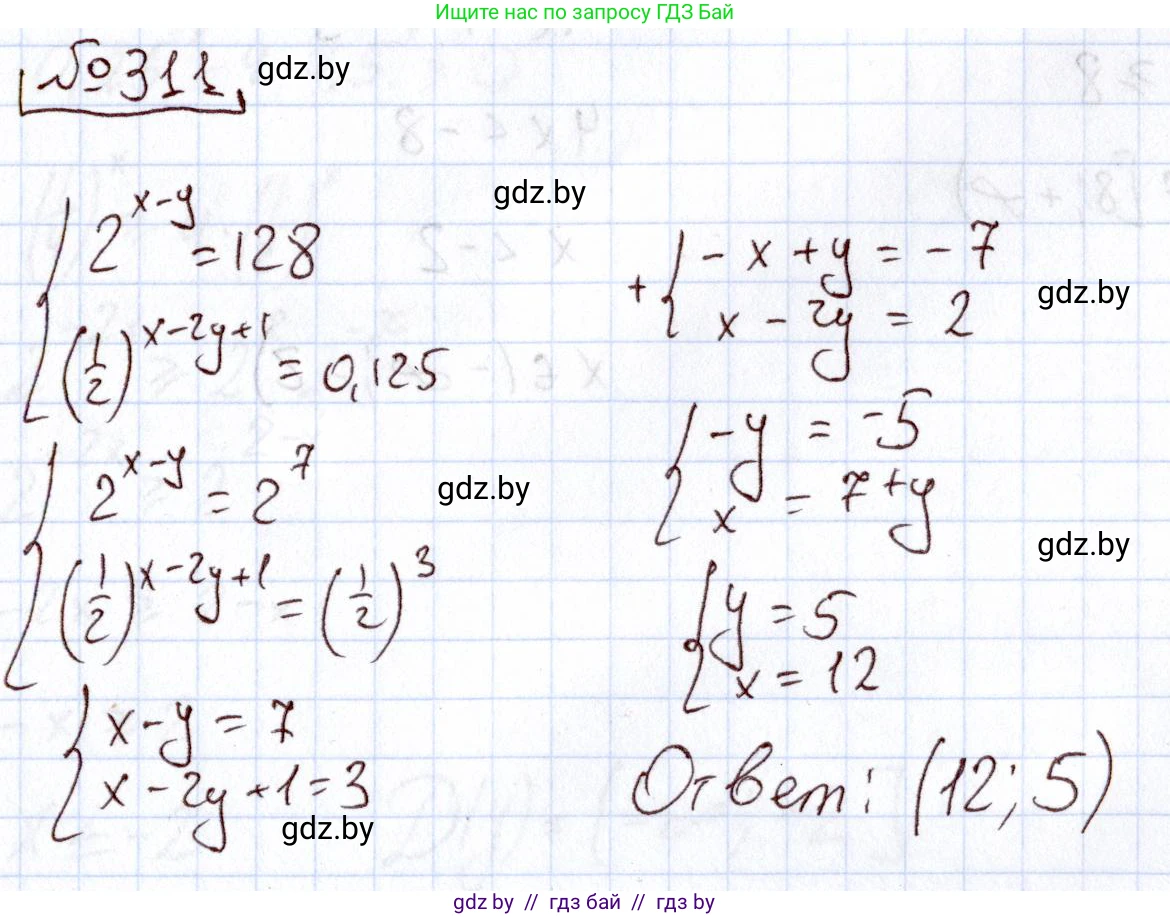 Ищите нас по запросу ГДЗ Бай
№311 gdz.by
gdz.by
{ 2^(x-y) = 128
(1/2)^(x-2y+1) = 0,125
{ 2^(x-y) = 2^7
gdz.by
(1/2)^(x-2y+1) = (1/2)^3
{ x-y = 7
x-2y+1=3
gdz.by
+ { -x+y = -7
x-2y = 2
gdz.by
{ -y = -5
x = 7+y
gdz.by
{ y = 5
x = 12
Ответ: (12; 5)
gdz.by // гдз бай // гдз by